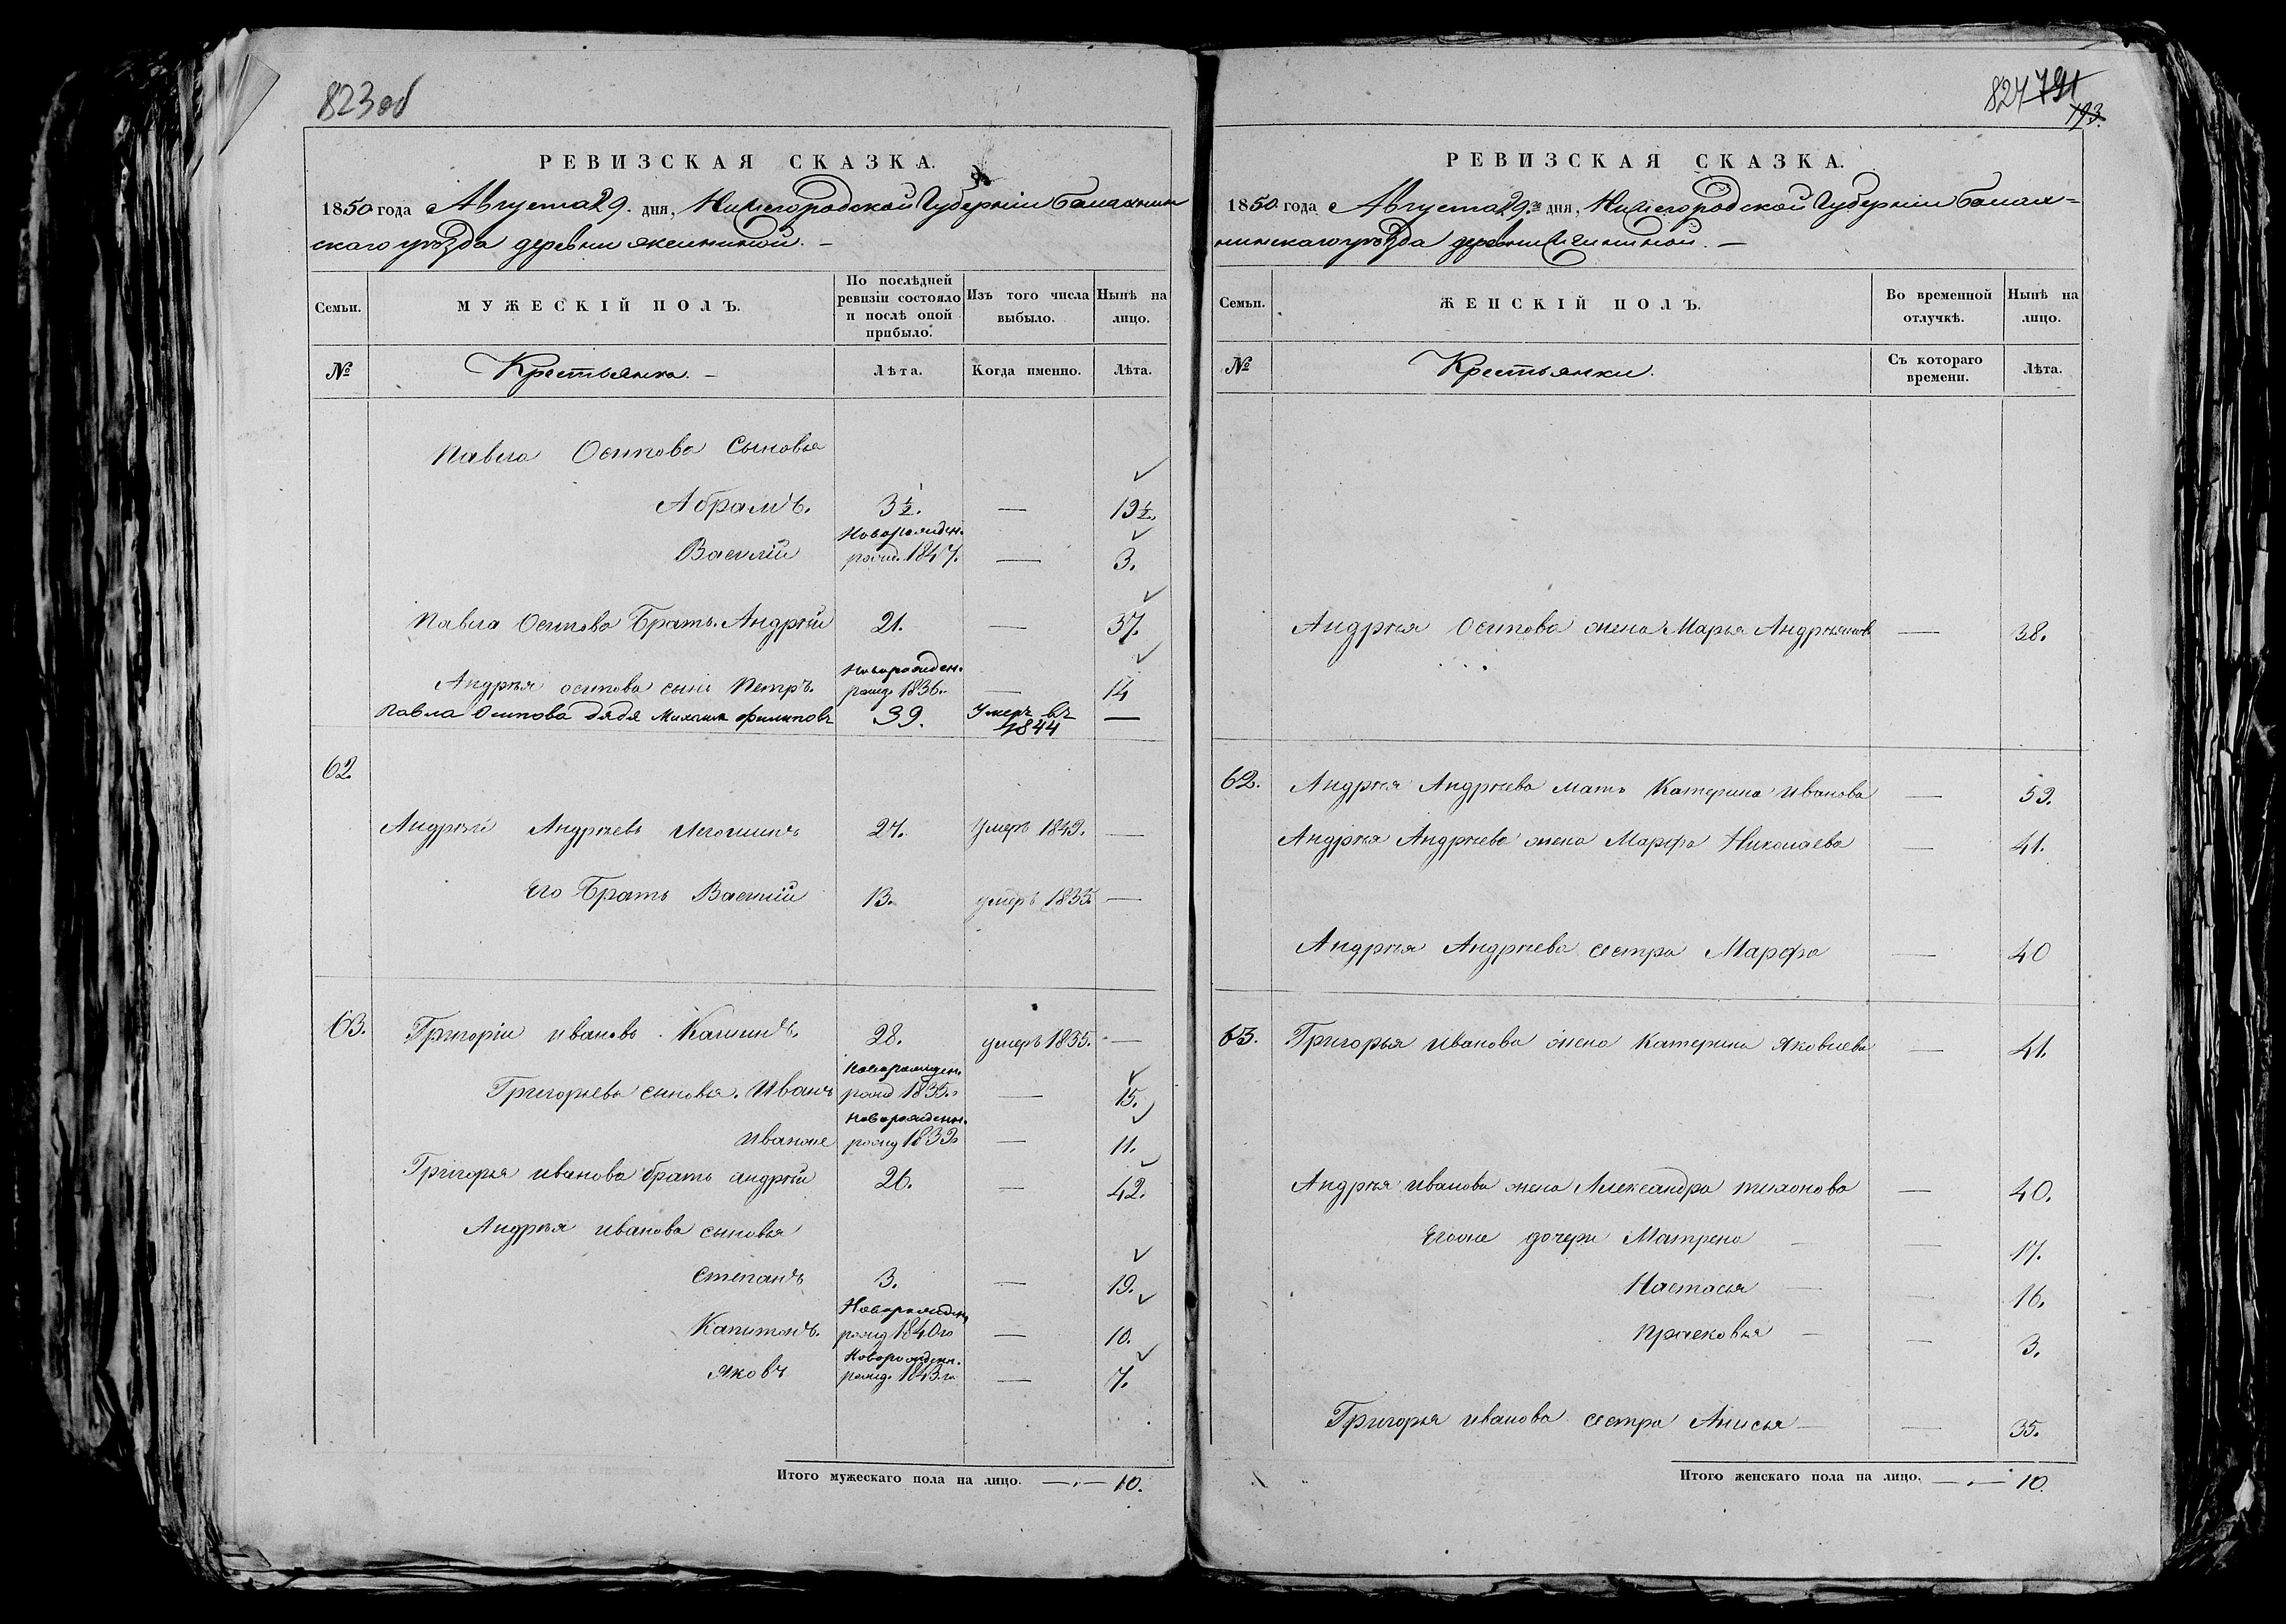 823 об
РЕВИЗСКАЯ СКАЗКА.
1850 года Августа 29. дня, Нижегородской Губерніи Балахнин
скаго уѣзда деревни
Семьи.
МУЖЕСКІЙ ПОЛЪ.
По послѣдней ревизіи состояло и послѣ оной прибыло.
Изъ того числа выбыло.
Нынѣ на лицо.
№
Крестьяна. —
Лѣта.
Когда именно.
Лѣта.
Павла Осипова Сыновья
Абрамъ. 3½. — 19½.
Новорожден.
Василій рожд. 1847. — 3.
Павла Осипова Братъ Андрѣй 21. — 37.
Новорожден.
Андрѣя осипова сынъ Петръ. рожд. 1836. — 14
Павла Осипова дядя Михаила филиповъ 39. Умеръ въ 1844 —
62.
Андрѣй Андрѣевъ 27. Умеръ 1849. —
Его Братъ Василій 13. умеръ 1835. —
63. Григоріи ивановъ 28. умеръ 1835. —
Новорожден.
Григорьева сыновья. Иванъ рожд 1835. — 15.
Новорожденн.
иванже рожд 1839 — 11.
Григорья иванова братъ андрѣй 26. — 42.
Андрѣя иванова сыновья
степанъ 3. — 19.
Новорожден
Капитонъ. рожд 1840го — 10.
Новорожденн.
яковъ рожд. 1843.го — 7.
Итого мужескаго пола на лицо. — 10.
824 791
793.
РЕВИЗСКАЯ СКАЗКА.
1850 года Августа 29. дня, Нижегородской Губерніи Балах=
нинскаго уѣзда деревни
Семьи.
ЖЕНСКІЙ ПОЛЪ.
Во временной отлучкѣ.
Нынѣ на лицо.
№
Крестьянки.
Съ котораго времени.
Лѣта.
Андрѣя Осипова жена Марья Андрѣянов — 38.
62. Андрѣя Андрѣева мать Катерина иванова — 59.
Андрѣя Андрѣева жена Марфа Николаева — 41.
Андрѣя Андрѣева сестра Марфа — 40
63. Григорья иванова жена Катерина яковлева — 41.
Андрѣя иванова жена Александра тихонова — 40.
Егоже дочери Матрена — 17.
Настасья — 16.
Прасковья — 3.
Григорья иванова сестра Анисья — 35.
Итого женскаго пола на лицо. — 10.